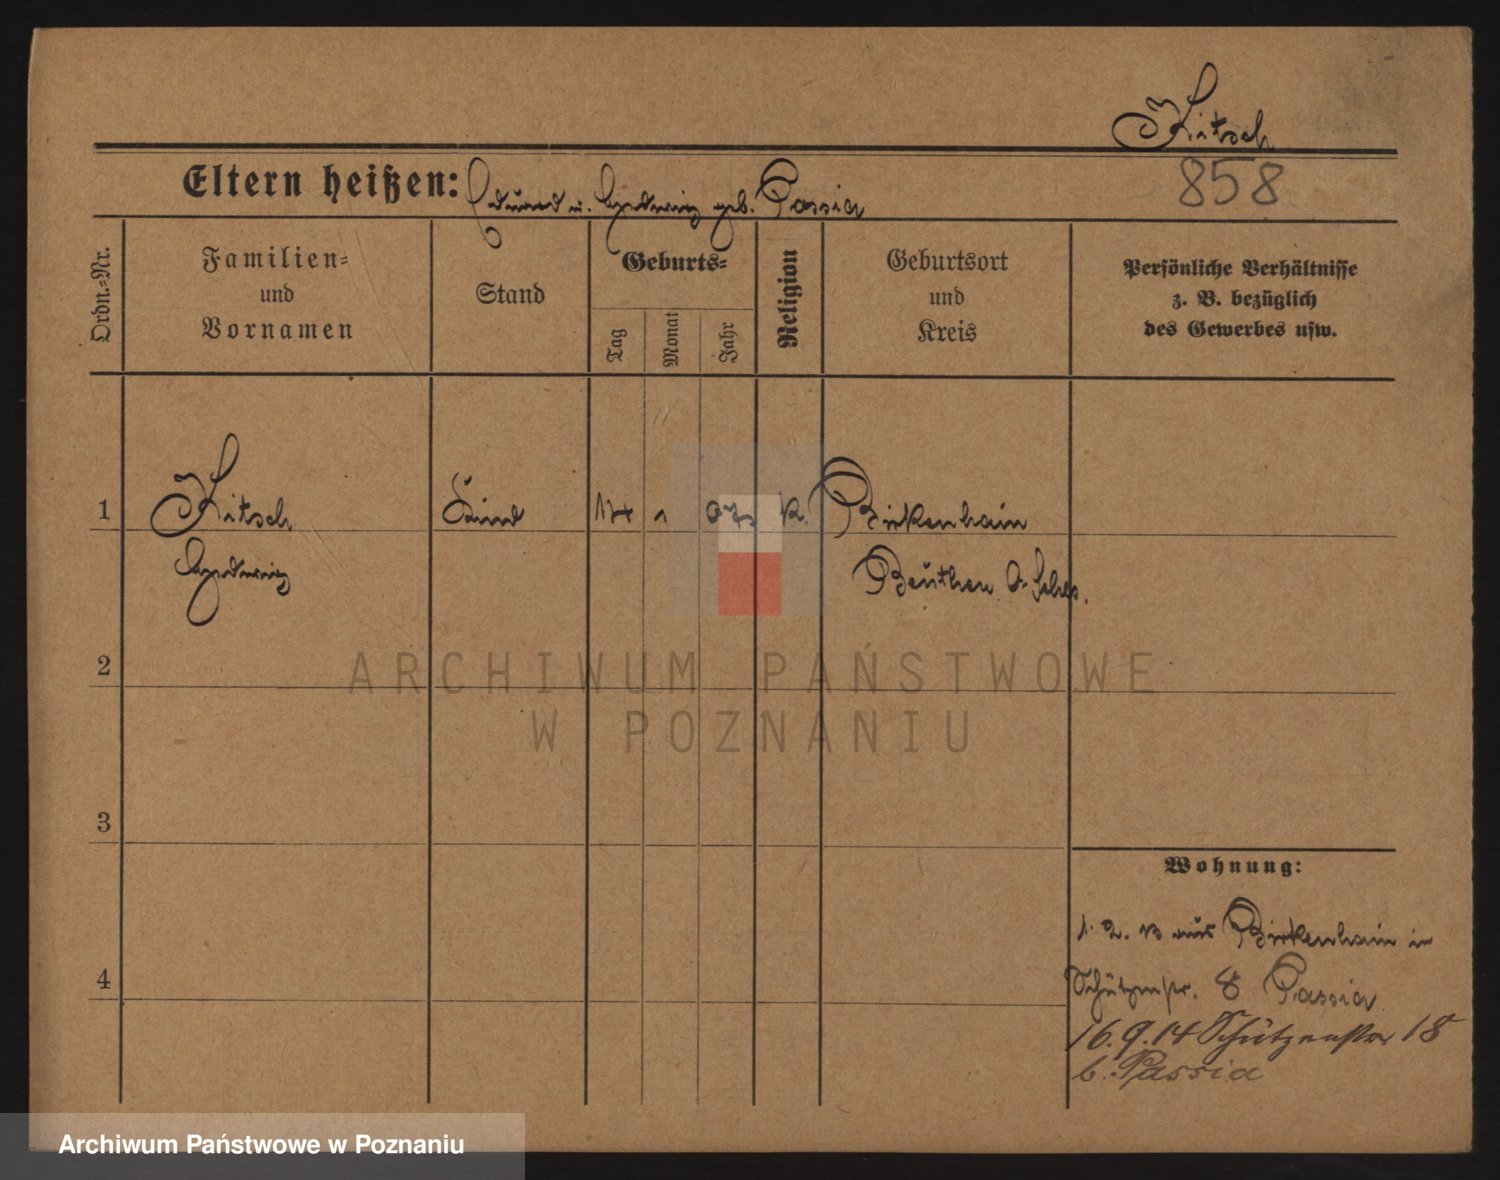 Kitsch
858
Eltern heißen: Eduard u. Hedwig geb. Passia
Ordn.-Nr.
Familien-
und
Vornamen
Stand
Geburts-
Tag
Monat
Jahr
Religion
Geburtsort
und
Kreis
Persönliche Verhältnisse
z. B. bezüglich
des Gewerbes usw.
1 Kitsch Kind 14 1 07 k. Birkenhain
Hedwig Beuthen O. Schles.
2
3
4
Wohnung:
1. 2. 13 aus Birkenhain in
Schützenstr. 8 Passia
16.9.14 Schützenstr 18
b. Passia
ARCHIWUM PAŃSTWOWE
W POZNANIU
Archiwum Państwowe w Poznaniu